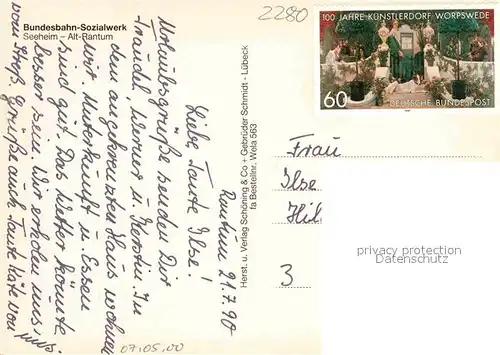 Bundesbahn-Sozialwerk
Seeheim – Alt-Rantum
2280
100 JAHRE KÜNSTLERDORF WORPSWEDE
60
DEUTSCHE BUNDESPOST
Rantum 21.7.90
Liebe Tante Ilse!
Urlaubsgrüße senden Dir
Traudel, Werner u. Kerstin. In
dem angekreuzten Haus wohnen
wir. Unterkunft u. Essen
sind gut. Das Wetter könnte
besser sein. Wir erholen uns
Grüße auch Tante Käte von
uns.
Herst. u. Verlag Schöning & Co + Gebrüder Schmidt - Lübeck
fa Bestellnr. Wela 563
Frau
Ilse
Hil
3
privacy protection
Datenschutz
07.05.00